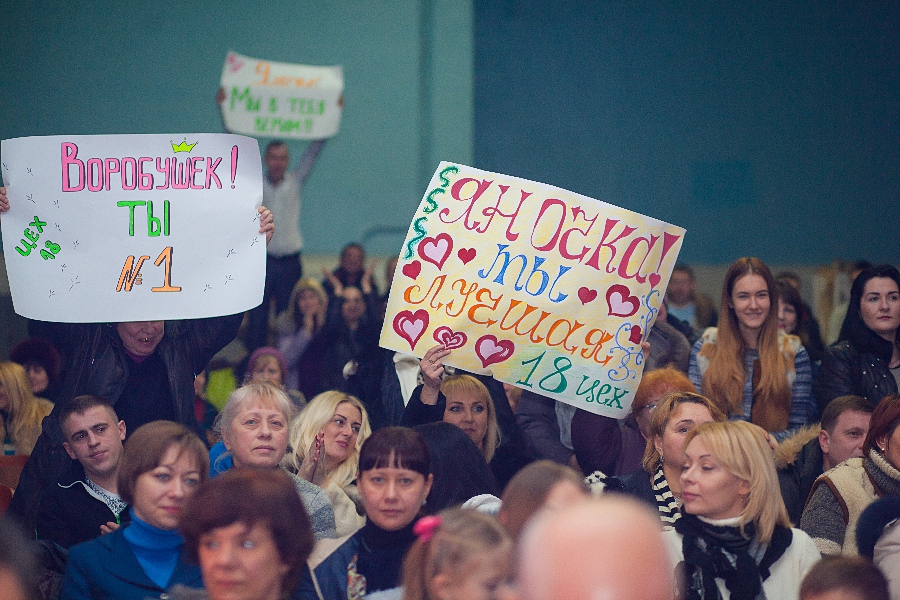 МЫ В ТЕБЯ
ВЕРИМ!!!
ВОРОБУШЕК!
ТЫ
№1
ЦЕХ
18
ЯНОЧКА!
ТЫ
ЛУЧШАЯ
18 цех